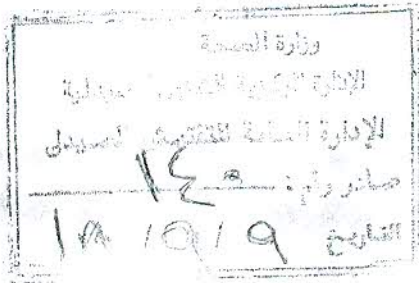 وزارة الصحة
الإدارة المركزية للشئون الصيدلية
الإدارة العامة للتفتيش الصيدلى
صادر رقم :
التاريخ